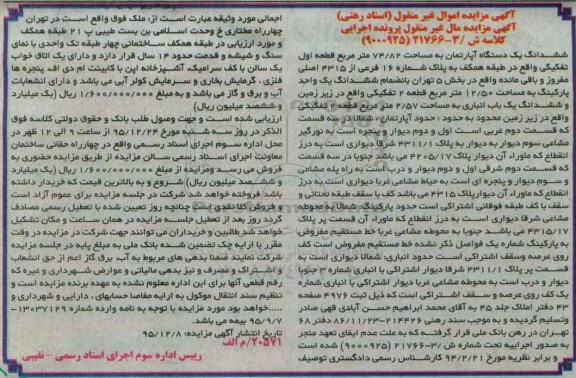 آگهی مزایده اموال غیر منقول (اسناد رهنی)
آگهی مزایده مال غیر منقول پرونده اجرایی
کلاسه ش /۳-۲۱۷۶۶ (۹۰۰۰۹۲۵)
ششدانگ یک دستگاه آپارتمان به مساحت ۷۴/۸۲ متر مربع قطعه اول
تفکیکی واقع در طبقه همکف به پلاک شماره ۱۶ فرعی از ۴۳۱۵ اصلی
مفروز و باقی مانده واقع در بخش ۵ تهران بانضمام ششدانگ یک واحد
پارکینگ به مساحت ۱۲/۵۰ متر مربع قطعه ۲ تفکیکی واقع در زیر زمین
و ششدانگ یک باب انباری به مساحت ۲/۵۷ متر مربع قطعه ۲ تفکیکی
واقع در زیر زمین محدود به حدود : حدود آپارتمان : شمالا در سه قسمت
که قسمت دوم غربی است اول و دوم دیوار و پنجره است به نورگیر
مشاعی سوم دیوار به دیوار به پلاک ۴۳۱۱/۱ شرقا دیواری است به درز
انقطاع که ماوراء آن دیوار پلاک ۴۲۰۵/۱۷ می باشد جنوبا در سه قسمت
که قسمت دوم شرقی اول و دوم دیوار و درب است به راه پله مشاعی
و سوم دیوار و پنجره ای است به حیاط مشاعی غربا دیواری است به درز
انقطاع که ماوراء آن دیوار پلاک ۴۳۱۵ می باشد کف با سقف طبقه تحتانی و
سقف با کف طبقه فوقانی اشتراکی است حدود پارکینگ شمالا به محوطه
مشاعی شرقا دیواری است به درز انقطاع که ماوراء آن قسمت پر پلاک
۴۳۱۵/۱۷ می باشد جنوبا به محوطه مشاعی غربا خط مستقیم مفروض
به پارکینگ شماره یک فواصل ذکر نشده خط مستقیم مفروض است کف
روی عرصه وسقف اشتراکی است حدود انباری: شمالا دیواری است به
قسمت پر پلاک ۴۳۱۱/۱ شرقا دیوار اشتراکی با انباری شماره ۳ جنوبا
دیوار و درب است به محوطه مشاعی غربا دیوار اشتراکی با انباری شماره
یک کف روی عرصه و سقف اشتراکی است که ذیل ثبت ۴۹۷۶ صفحه
۴۳ دفتر املاک جلد ۴۵ به آقای محمد ابراهیم حسن آبادی قهی صادر
وتسلیم گردیده و به موجب سند رهنی ۲۱۴۴۲۶-۸۶/۱۱/۲۳ دفتر ۶۸
تهران در رهن بانک ملی قرار گرفته که به علت عدم ایفای تعهد منجر
به صدور اجراییه تحت شماره ش /۳-۲۱۷۶۶ (۹۰۰۰۹۲۵) شده است
و برابر نظریه مورخ ۹۴/۲/۲۱ کارشناس رسمی دادگستری توصیف
اجمالی مورد وثیقه عبارت است از: ملک فوق واقع است در تهران
چهارراه مختاری خ وحدت اسلامی بن بست طیبی پ ۲۱ طبقه همکف
و مورد ارزیابی در طبقه همکف ساختمانی چهار طبقه تک واحدی با نمای
سنگ و شیشه و قدمت حدود ۱۴ سال قرار دارد و دارای یک اتاق خواب
یک سالن با کف سرامیک آشپزخانه اپن با کابینت ام دی اف پنجره ها
فلزی، گرمایش بخاری و سرمایش کولر آبی می باشد و دارای انشعابات
آب و برق و گاز می باشد و به مبلغ ۱/۶۰۰/۰۰۰/۰۰۰ ریال (یک میلیارد
و ششصد میلیون ریال)
ارزیابی شده است و جهت وصول طلب بانک و حقوق دولتی کلاسه فوق
الذکر در روز سه شنبه مورخ ۹۵/۱۲/۲۴ از ساعت ۹ الی ۱۲ ظهر در
محل اداره سوم اجرای اسناد رسمی واقع در چهارراه حقانی ساختمان
معاونت اجرای اسناد رسمی سالن مزایده از طریق مزایده حضوری به
فروش می رسد ومزایده از مبلغ ۱/۶۰۰/۰۰۰/۰۰۰ ریال (یک میلیارد
و ششصد میلیون ریال) شروع و به بالاترین قیمت که خریدار داشته
باشد فروخته خواهد شد شرکت در جلسه مزایده برای عموم آزاد است
و فروش کلا نقدی است چنانچه روز تعیین شده با تعطیل رسمی مصادف
گردد روز بعد از تعطیل جلسه مزایده در همان ساعت و مکان تشکیل
خواهد شد طالبین و خریداران می توانند جهت شرکت در مزایده در وقت
مقرر با ارایه چک تضمین شده بانک ملی به مبلغ پایه در جلسه مزایده
شرکت نمایند ضمنا بدهی های مربوط به آب، برق گاز اعم از حق انشعاب
و اشتراک و مصرف و نیز بدهی مالیاتی و عوارض شهرداری و غیره که
رقم قطعی آنها برای این اداره معلوم نشده به عهده برنده مزایده است و
تنظیم سند انتقال موکول به ارایه مفاصا حسابهای، دارایی و شهرداری و
.....خواهد بود مورد مزایده با توجه به نامه وارده شماره ۱۳۰۳۷۱۲۹-
۹۵/۹/۷ بیمه می باشد.
تاریخ انتشار آگهی مزایده: ۹۵/۱۲/۸
۲۰۵۷۱/م الف
رییس اداره سوم اجرای اسناد رسمی - نقیبی